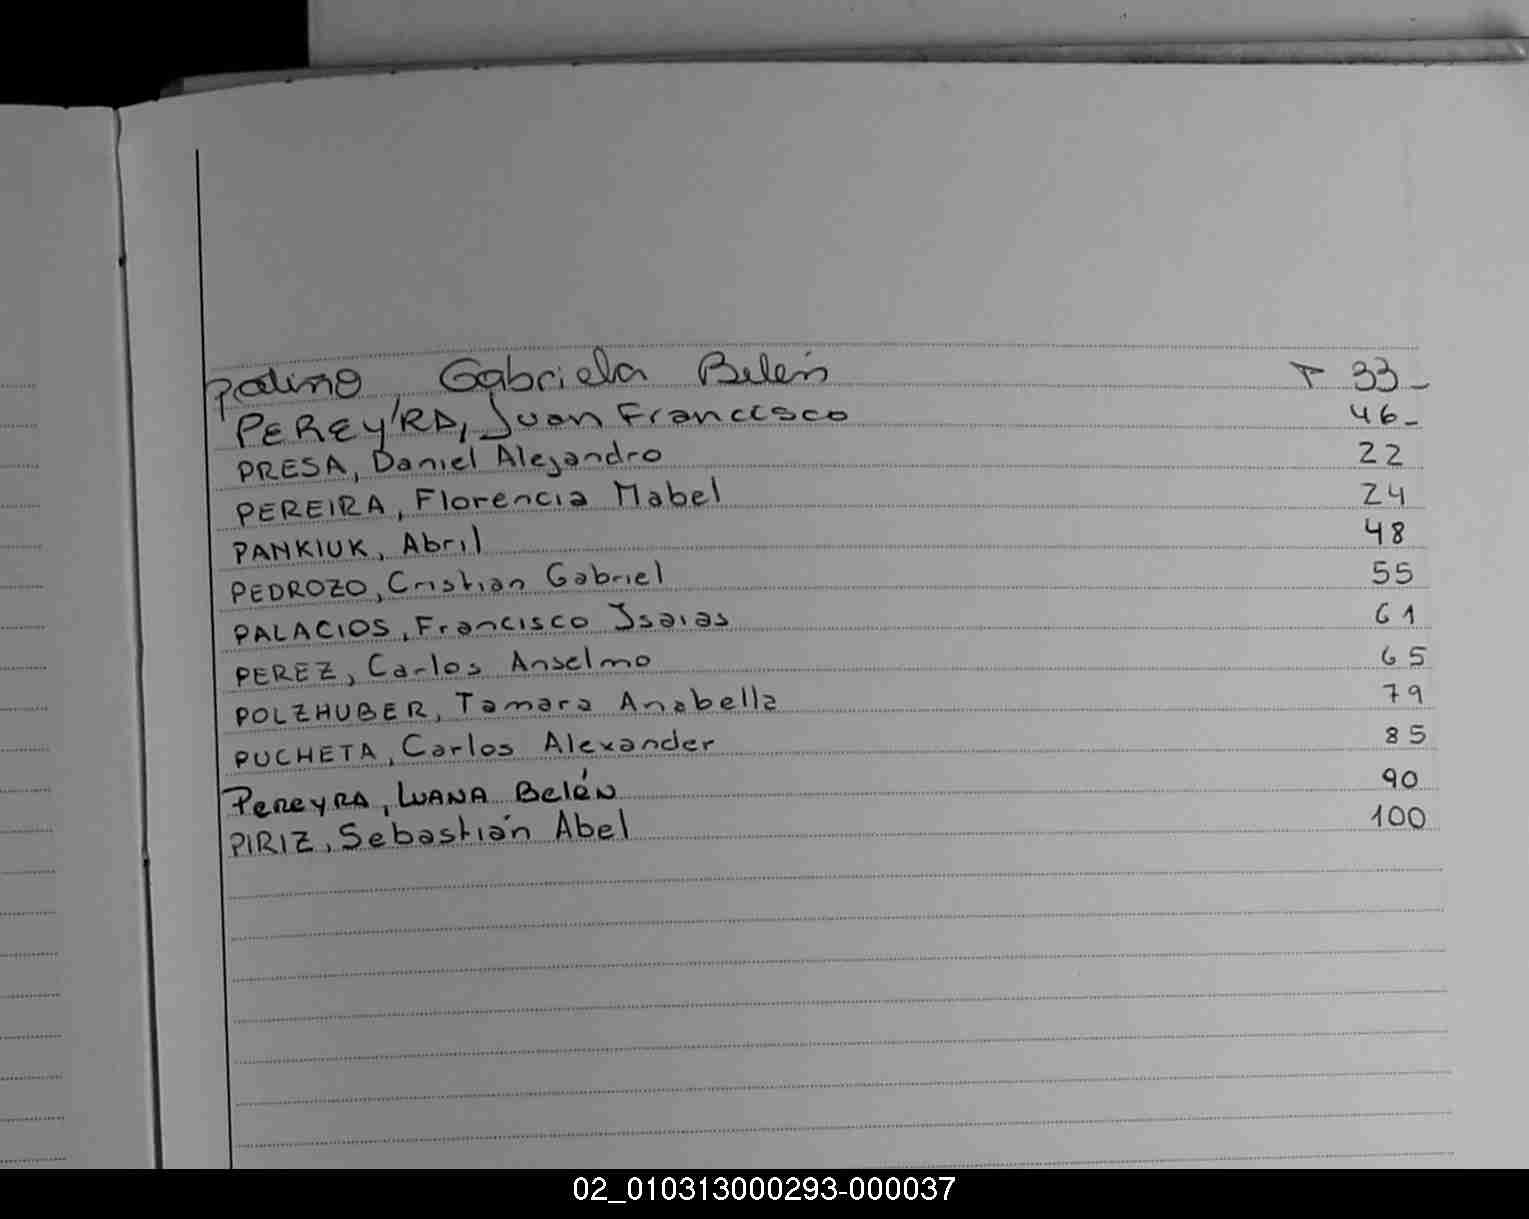 Patiño Gabriela Belén P 33-
PEREYRA, Juan Francisco 46-
PRESA, Daniel Alejandro 22
PEREIRA, Florencia Mabel 24
PANKIUK, Abril 48
PEDROZO, Cristian Gabriel 55
PALACIOS, Francisco Isaias 61
PEREZ, Carlos Anselmo 65
POLZHUBER, Tamara Anabella 79
PUCHETA, Carlos Alexander 85
PereyRA, LUANA Belén 90
PIRIZ, Sebastián Abel 100
02_010313000293-000037